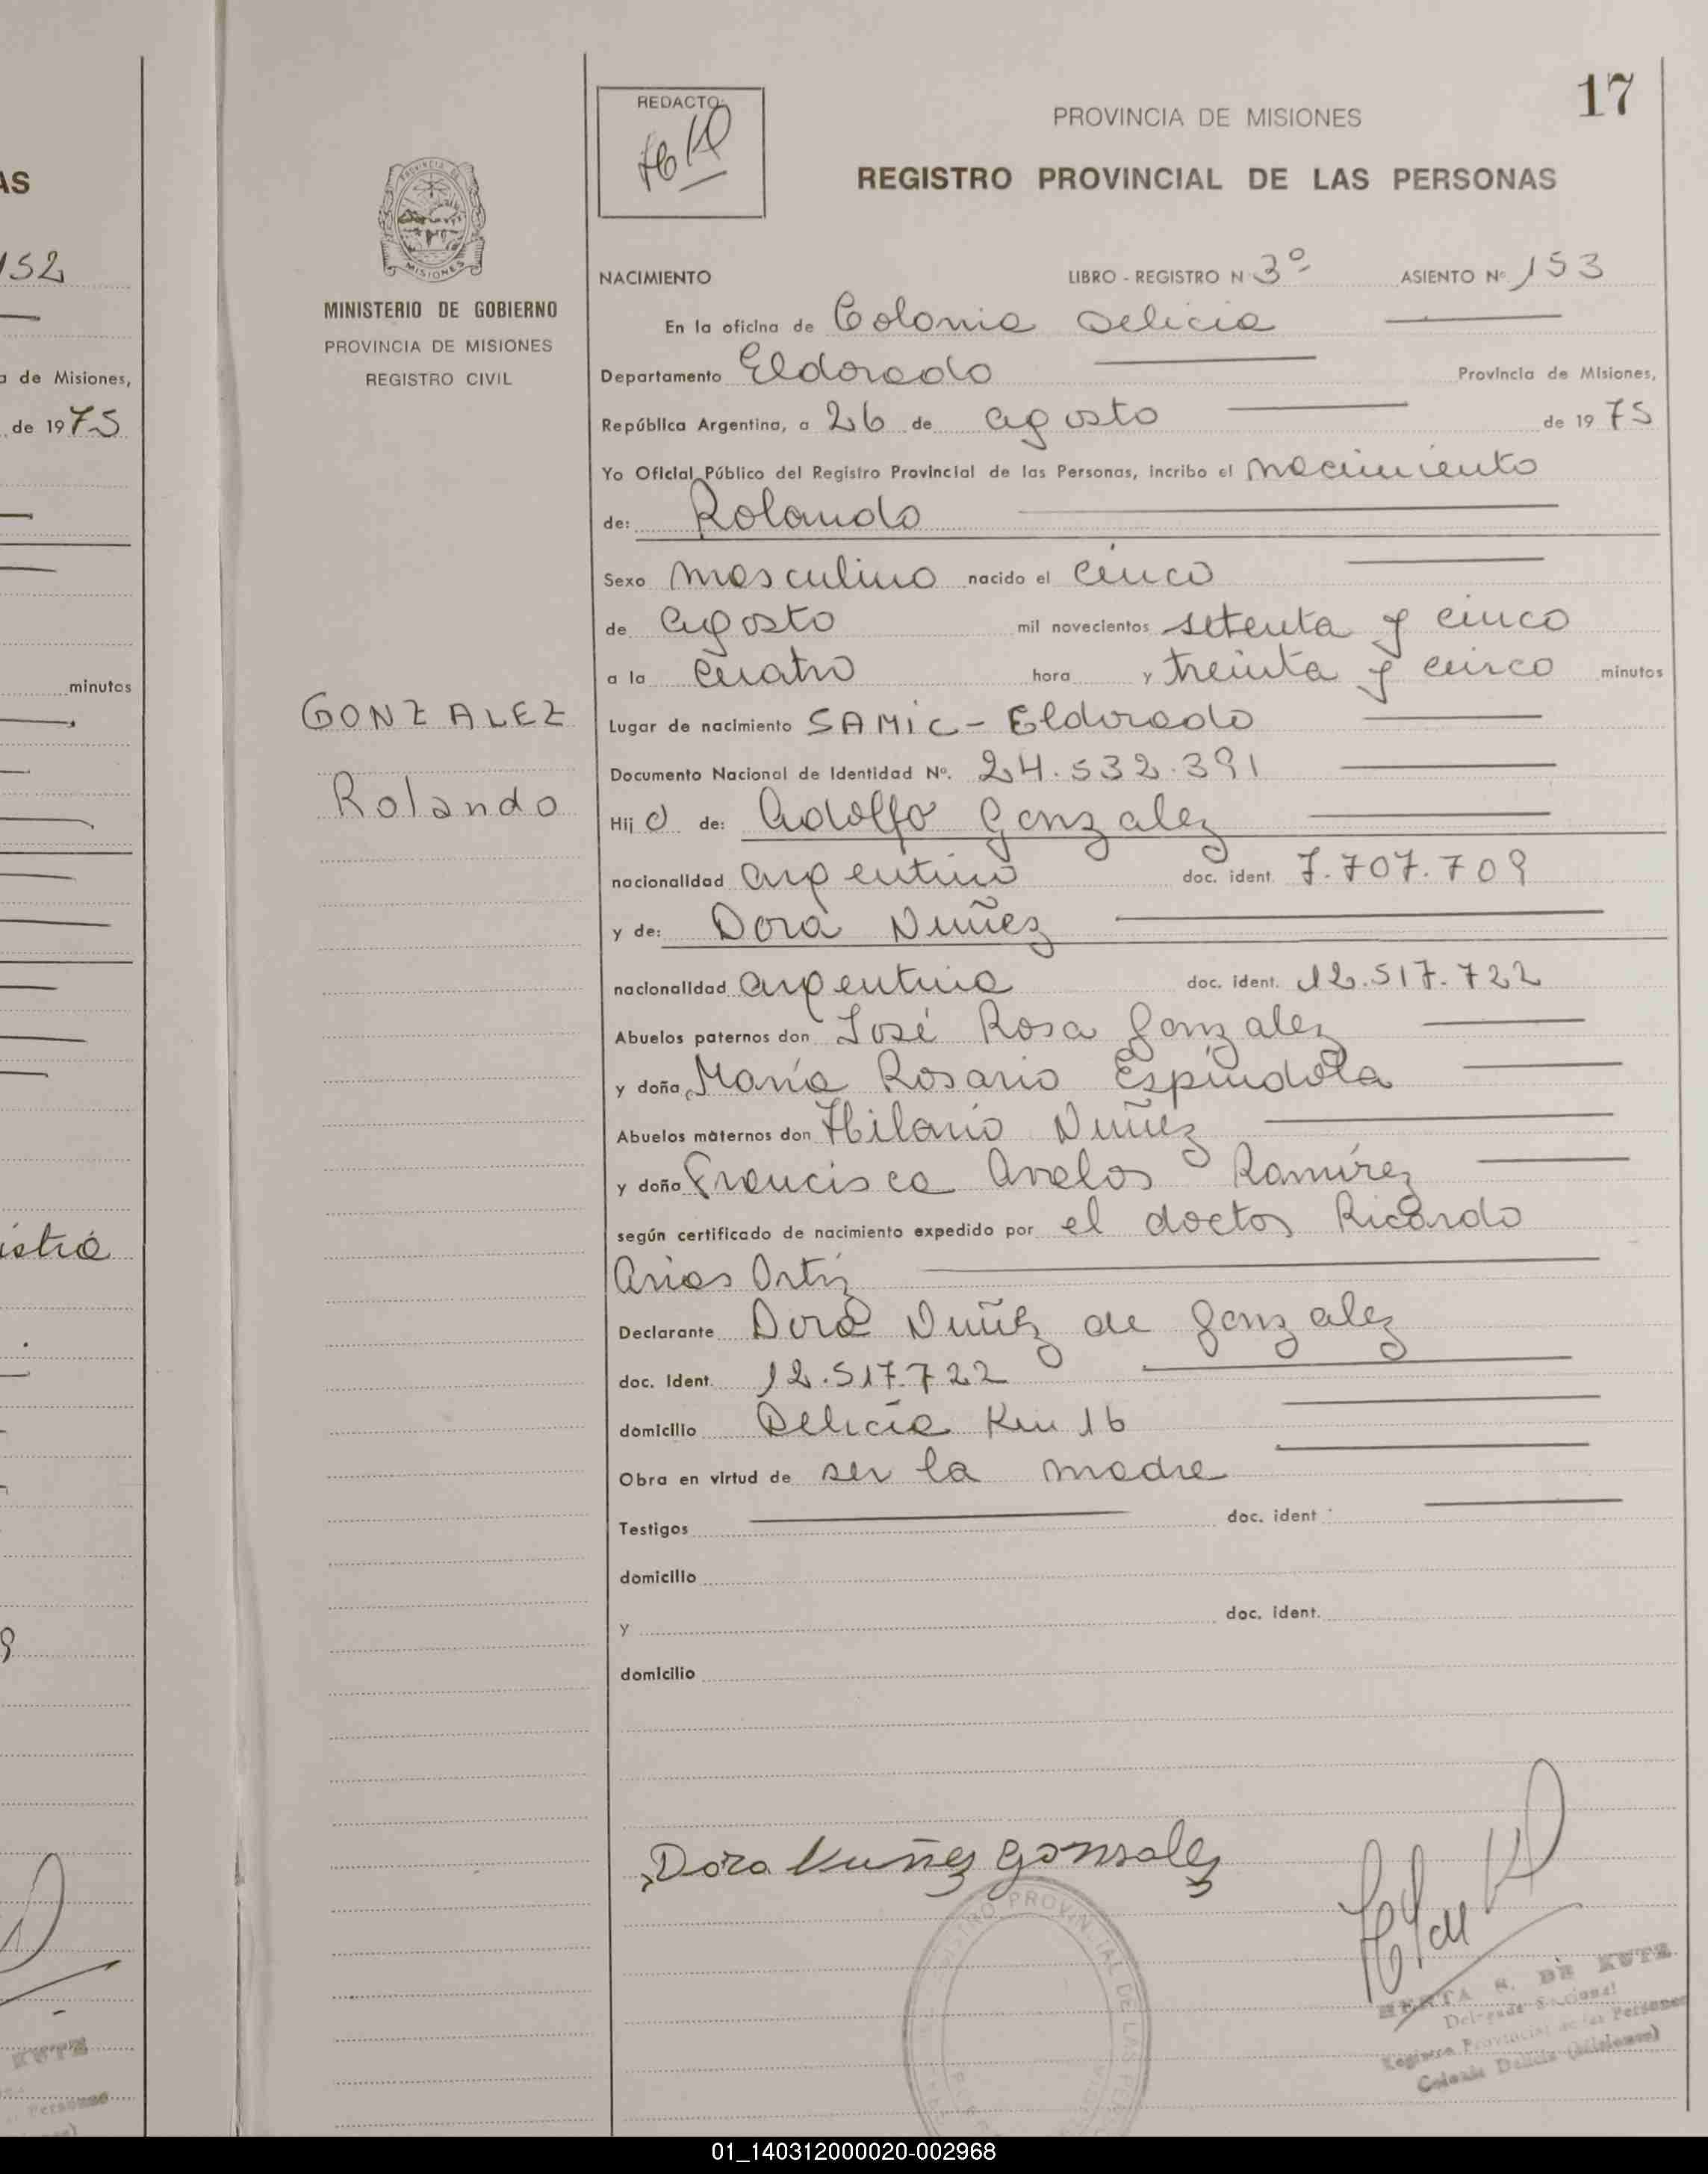 AS
152
a de Misiones,
de 1975
minutos
istró
17
REDACTO:
PROVINCIA DE MISIONES
REGISTRO PROVINCIAL DE LAS PERSONAS
MISIONES
MINISTERIO DE GOBIERNO
PROVINCIA DE MISIONES
REGISTRO CIVIL
GONZALEZ
Rolando
NACIMIENTO LIBRO - REGISTRO N 3º ASIENTO Nº 153
En la oficina de Colonia Delicia
Departamento Eldorado Provincia de Misiones,
República Argentina, a 26 de agosto de 1975
Yo Oficial Público del Registro Provincial de las Personas, incribo el nacimiento
de: Rolando
Sexo masculino nacido el cinco
de agosto mil novecientos setenta y cinco
a la cuatro hora y treinta y cinco minutos
Lugar de nacimiento SAMIC - Eldorado
Documento Nacional de Identidad Nº. 24.532.391
Hijo de: Adolfo Gonzalez
nacionalidad argentino doc. ident. 7.707.709
y de: Dora Nuñez
nacionalidad argentina doc. ident. 12.517.722
Abuelos paternos don José Rosa Gonzalez
y doña María Rosario Espíndola
Abuelos maternos don Hilario Nuñez
y doña Francisca Avalos Ramírez
según certificado de nacimiento expedido por el doctor Ricardo
Arias Ortíz
Declarante Dora Nuñez de Gonzalez
doc. Ident. 12.517.722
domicilio Delicia Km 16
Obra en virtud de ser la madre
Testigos doc. ident
domicilio
y doc. ident.
domicilio
Dora Nuñez Gonsales
PROVINCIAL DE LAS PER
HERTA S. DE KUTZ
Delegada Seccional
Registro Provincial de las Personas
Colonia Delicia (Misiones)
01_140312000020-002968